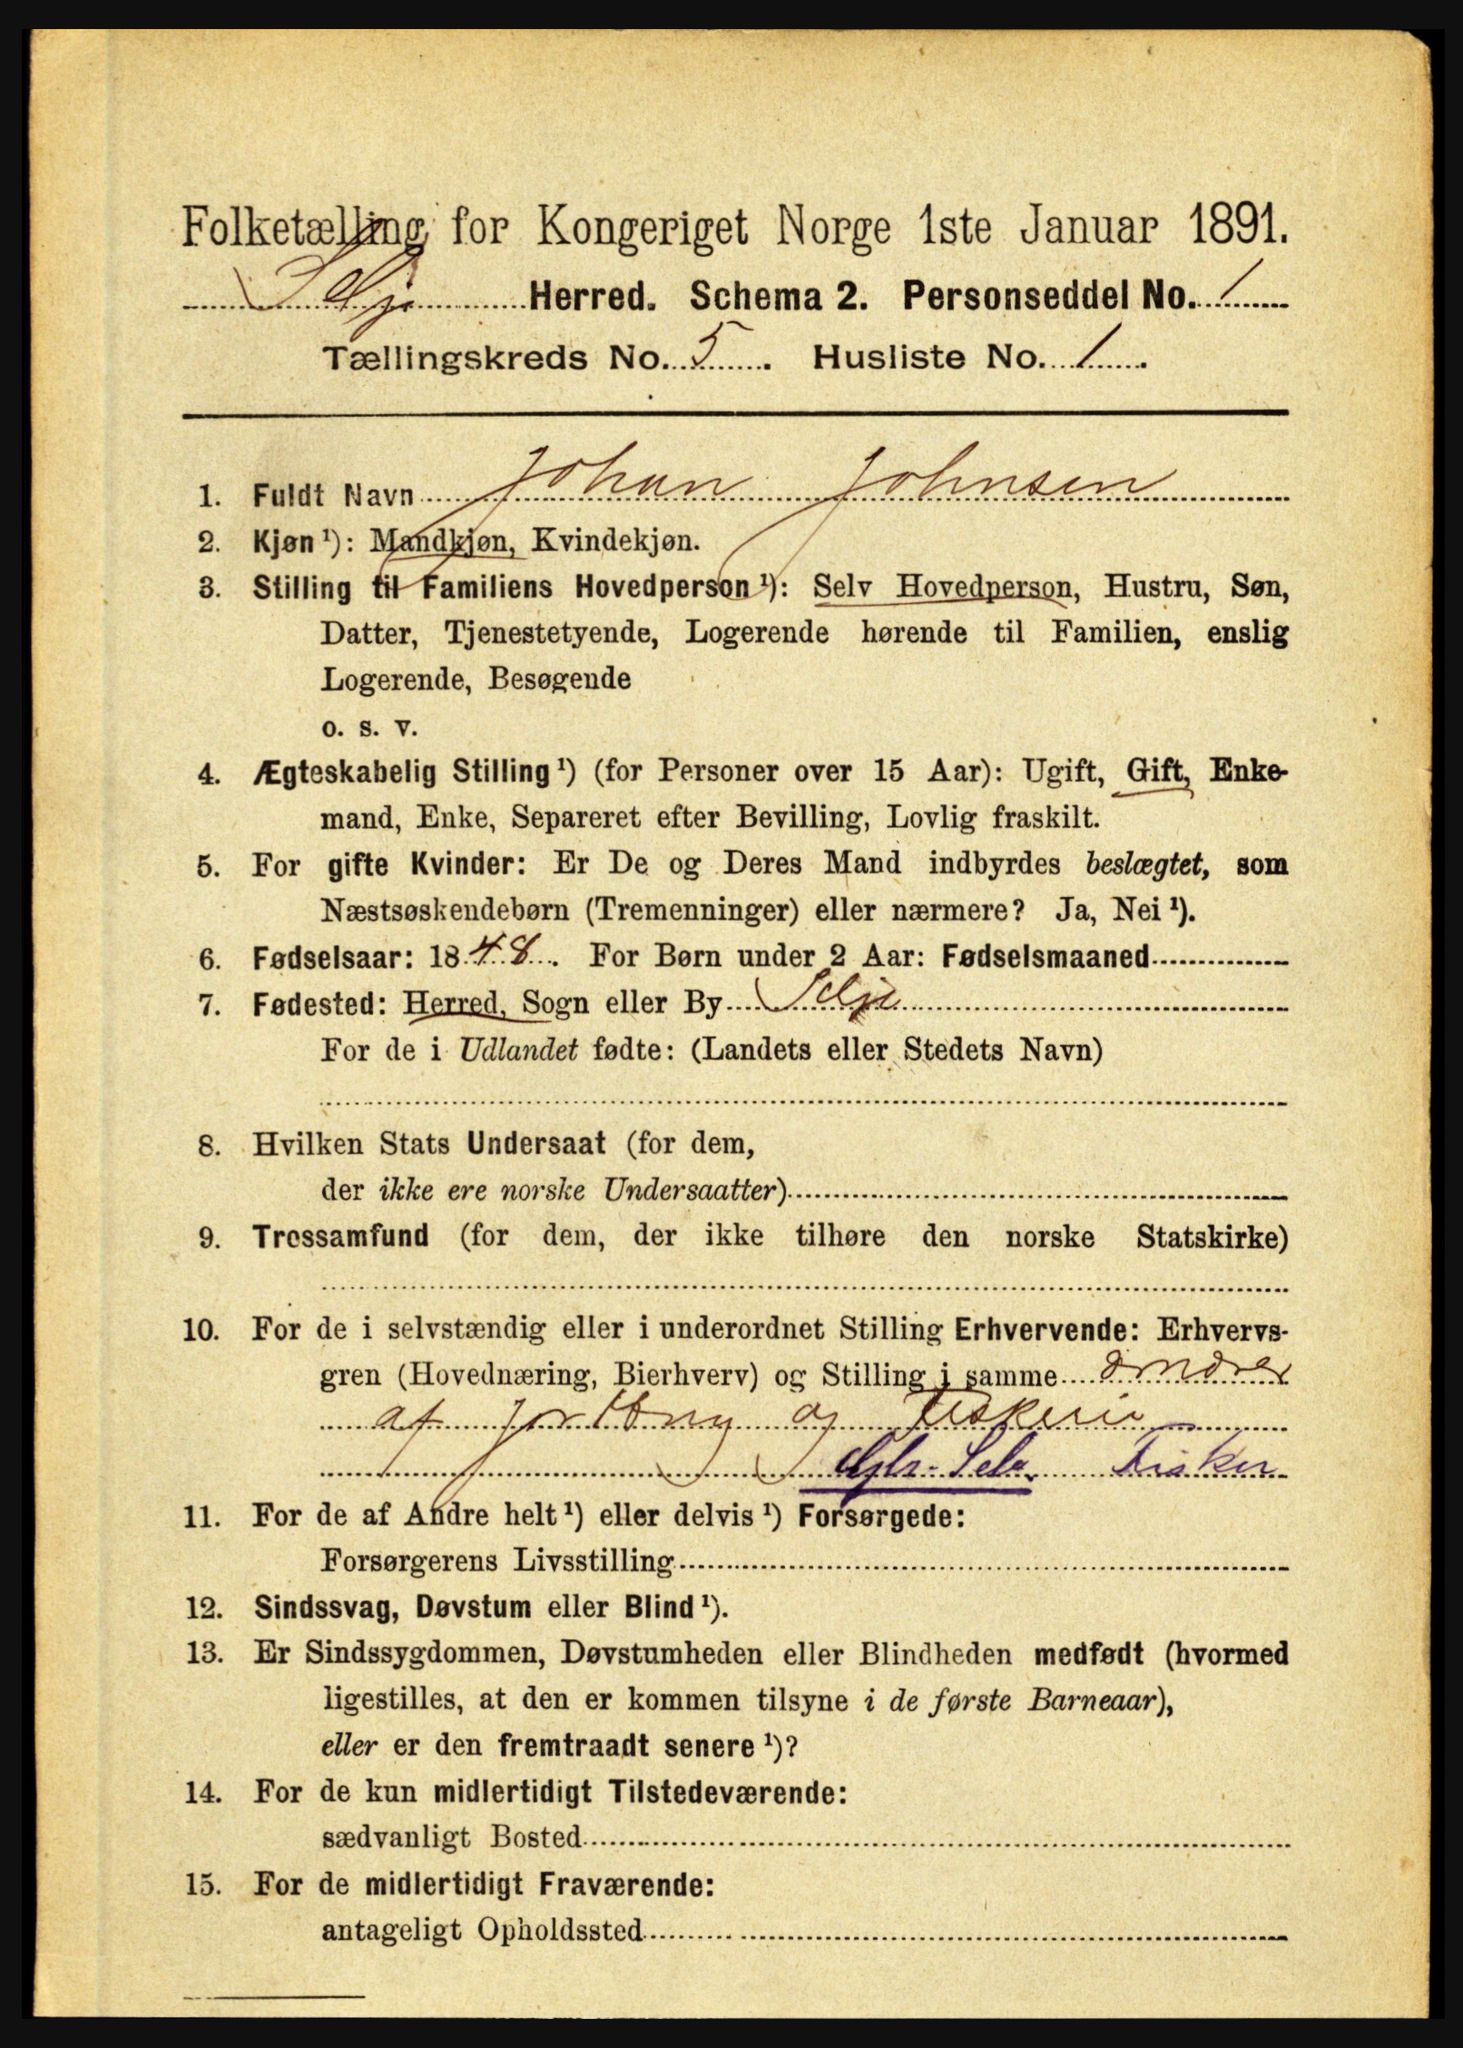 Folketælling for Kongeriget Norge 1ste Januar 1891.
Selje Herred. Schema 2. Personseddel No. 1
Tællingskreds No. 5. Husliste No. 1.
1. Fuldt Navn Johan Johnsen
2. Kjøn ¹): Mandkjøn, Kvindekjøn.
3. Stilling til Familiens Hovedperson ¹): Selv Hovedperson, Hustru, Søn,
Datter, Tjenestetyende, Logerende hørende til Familien, enslig
Logerende, Besøgende
o. s. v.
4. Ægteskabelig Stilling ¹) (for Personer over 15 Aar): Ugift, Gift, Enke-
mand, Enke, Separeret efter Bevilling, Lovlig fraskilt.
5. For gifte Kvinder: Er De og Deres Mand indbyrdes beslægtet, som
Næstsøskendebørn (Tremenninger) eller nærmere? Ja, Nei ¹).
6. Fødselsaar: 1848. For Børn under 2 Aar: Fødselsmaaned
7. Fødested: Herred, Sogn eller By Selje
For de i Udlandet fødte: (Landets eller Stedets Navn)
8. Hvilken Stats Undersaat (for dem,
der ikke ere norske Undersaatter)
9. Trossamfund (for dem, der ikke tilhøre den norske Statskirke)
10. For de i selvstændig eller i underordnet Stilling Erhvervende: Erhvervs-
gren (Hovednæring, Bierhverv) og Stilling i samme
af og Fiskeri
Gbr. Selv. Fisker
11. For de af Andre helt ¹) eller delvis ¹) Forsørgede:
Forsørgerens Livsstilling
12. Sindssvag, Døvstum eller Blind ¹).
13. Er Sindssygdommen, Døvstumheden eller Blindheden medfødt (hvormed
ligestilles, at den er kommen tilsyne i de første Barneaar),
eller er den fremtraadt senere ¹)?
14. For de kun midlertidigt Tilstedeværende:
sædvanligt Bosted
15. For de midlertidigt Fraværende:
antageligt Opholdssted